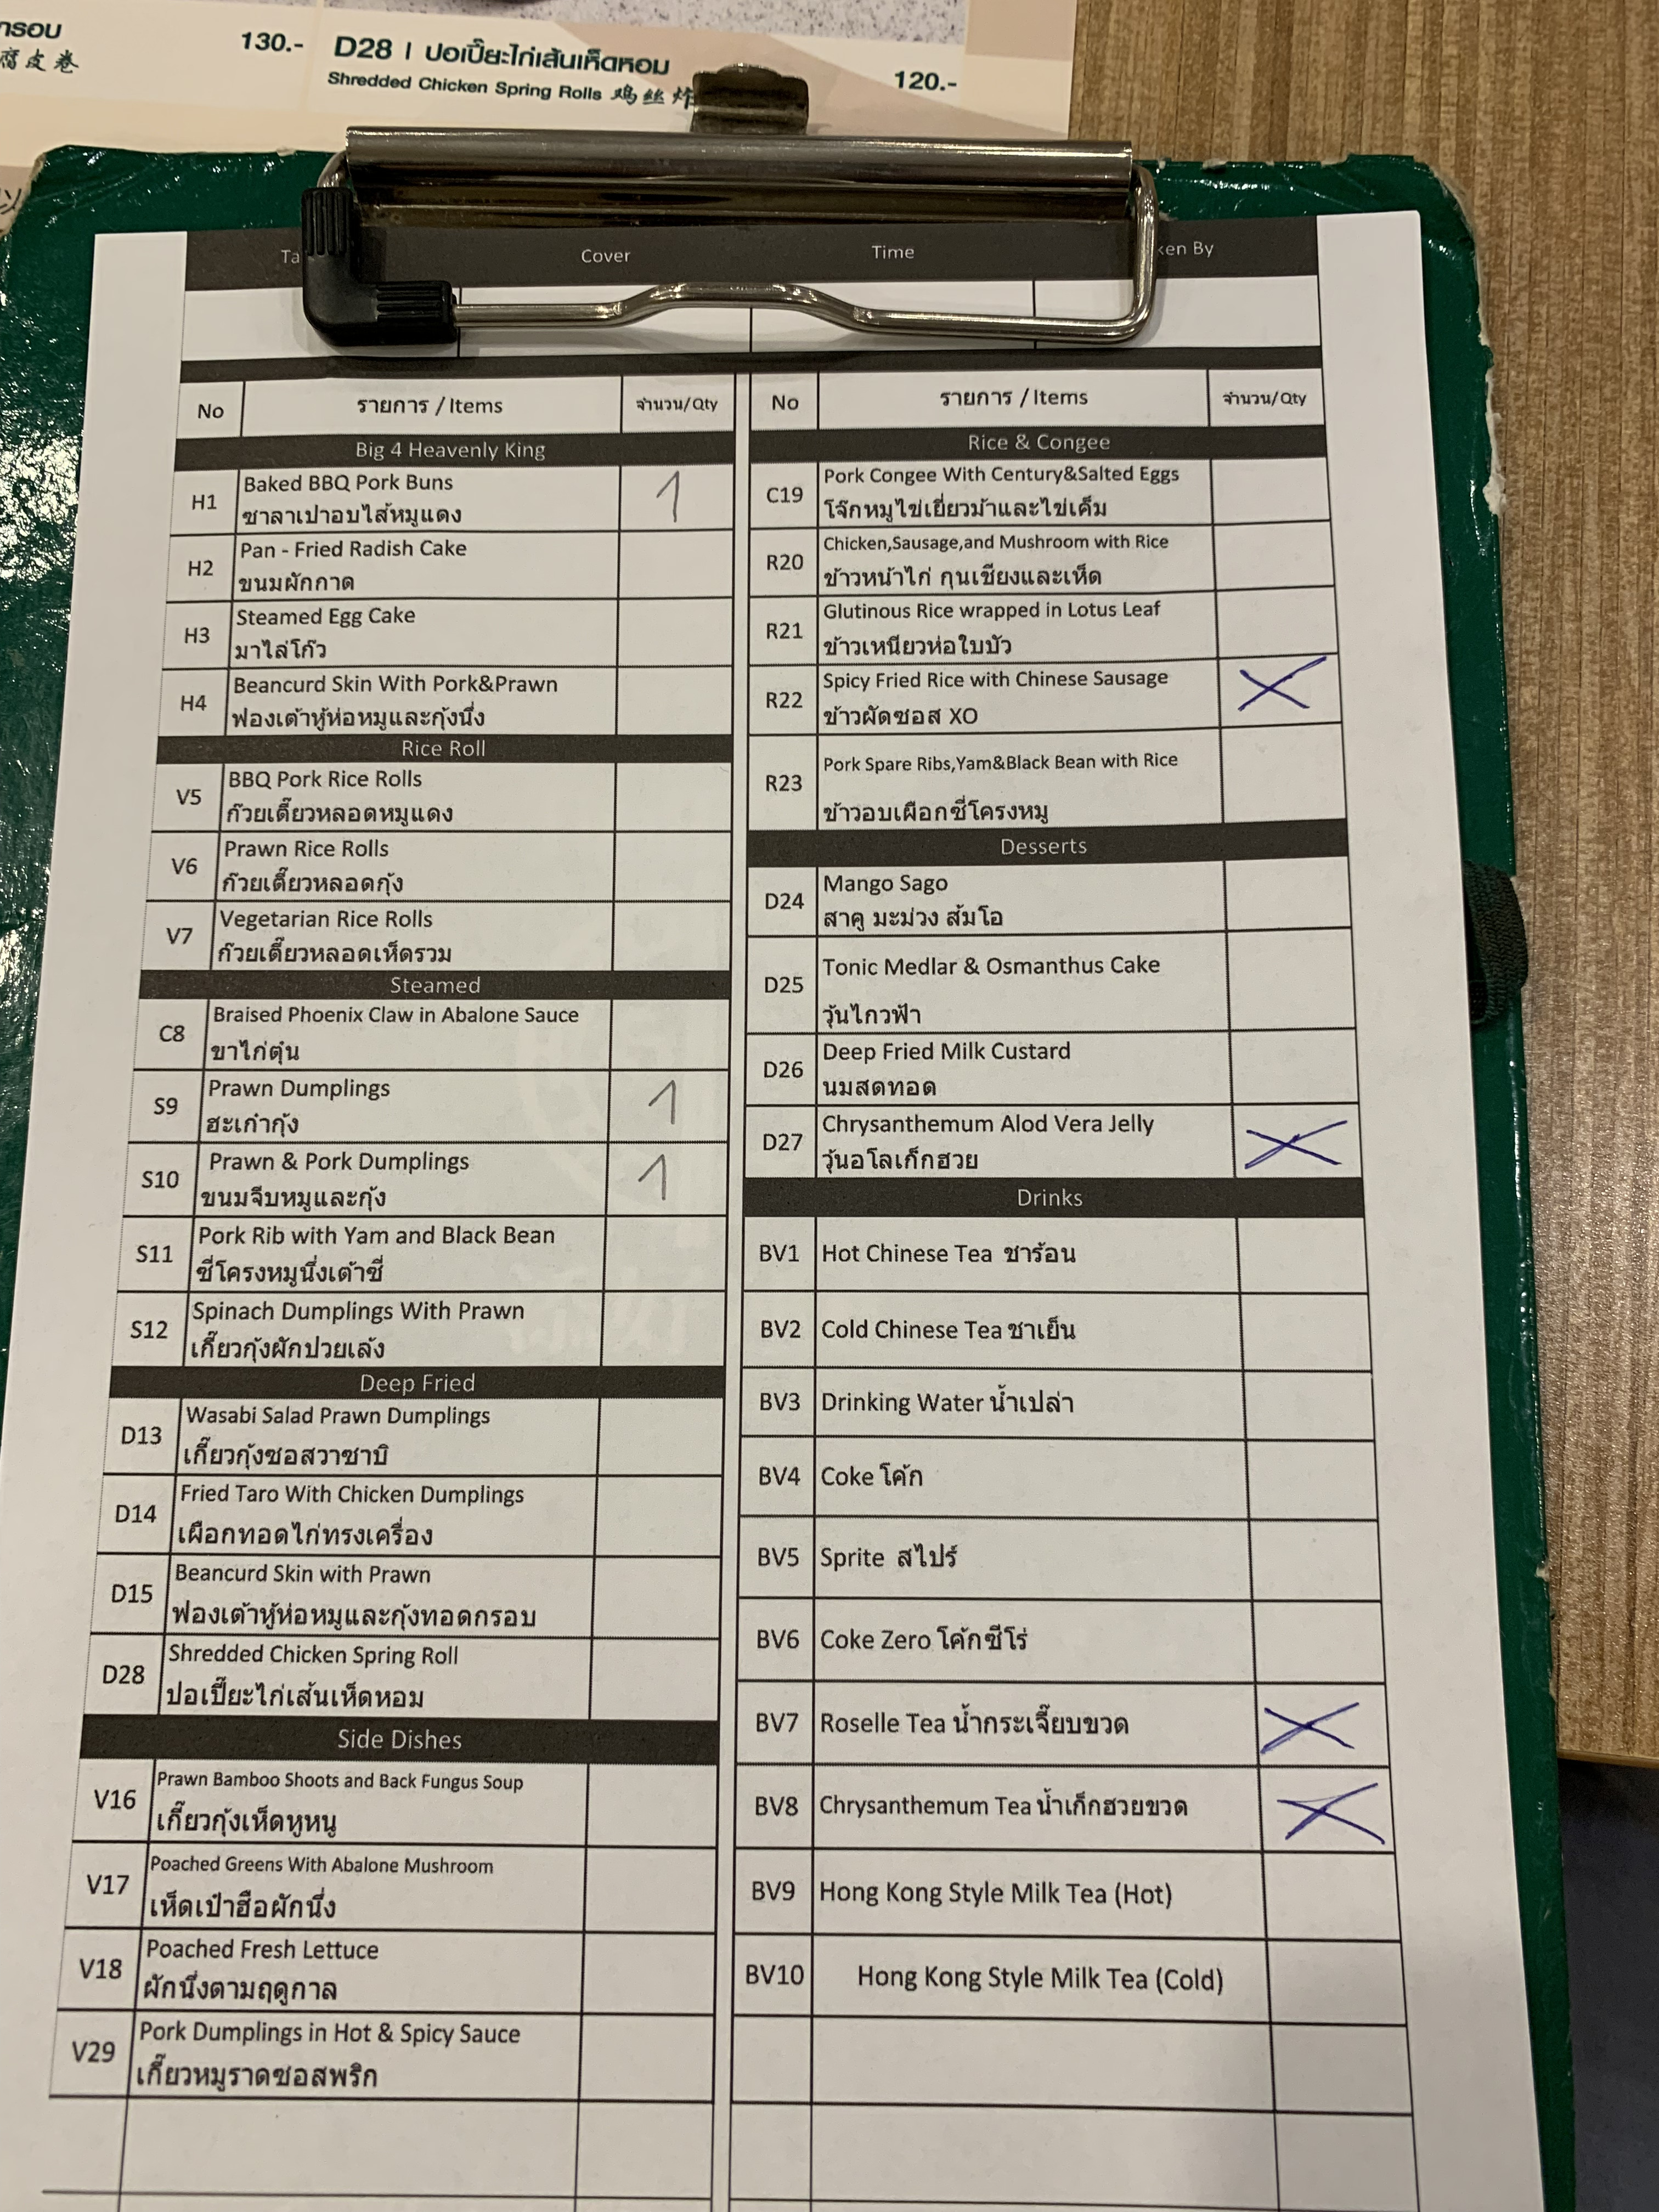 130.-
D28 | ปอเปี๊ยะไก่เส้นเห็ดหอม
Shredded Chicken Spring Rolls 鸡丝炸
120.-
Cover Time
No รายการ / Items จำนวน/Qty
Big 4 Heavenly King
H1 Baked BBQ Pork Buns 1
ซาลาเปาอบไส้หมูแดง
H2 Pan - Fried Radish Cake
ขนมผักกาด
H3 Steamed Egg Cake
มาไล่โก๊ว
H4 Beancurd Skin With Pork&Prawn
ฟองเต้าหู้ห่อหมูและกุ้งนึ่ง
Rice Roll
V5 BBQ Pork Rice Rolls
ก๊วยเตี๊ยวหลอดหมูแดง
V6 Prawn Rice Rolls
ก๊วยเตี๊ยวหลอดกุ้ง
V7 Vegetarian Rice Rolls
ก๊วยเตี๊ยวหลอดเห็ดรวม
Steamed
C8 Braised Phoenix Claw in Abalone Sauce
ขาไก่ตุ๋น
S9 Prawn Dumplings 1
ฮะเก๋ากุ้ง
S10 Prawn & Pork Dumplings 1
ขนมจีบหมูและกุ้ง
S11 Pork Rib with Yam and Black Bean
ซี่โครงหมูนึ่งเต้าซี่
S12 Spinach Dumplings With Prawn
เกี๊ยวกุ้งผักปวยเล้ง
Deep Fried
D13 Wasabi Salad Prawn Dumplings
เกี๊ยวกุ้งซอสวาซาบิ
D14 Fried Taro With Chicken Dumplings
เผือกทอดไก่ทรงเครื่อง
D15 Beancurd Skin with Prawn
ฟองเต้าหู้ห่อหมูและกุ้งทอดกรอบ
D28 Shredded Chicken Spring Roll
ปอเปี๊ยะไก่เส้นเห็ดหอม
Side Dishes
V16 Prawn Bamboo Shoots and Back Fungus Soup
เกี๊ยวกุ้งเห็ดหูหนู
V17 Poached Greens With Abalone Mushroom
เห็ดเป๋าฮือผักนึ่ง
V18 Poached Fresh Lettuce
ผักนึ่งตามฤดูกาล
V29 Pork Dumplings in Hot & Spicy Sauce
เกี๊ยวหมูราดซอสพริก
No รายการ / Items จำนวน/Qty
Rice & Congee
C19 Pork Congee With Century&Salted Eggs
โจ๊กหมูไข่เยี่ยวม้าและไข่เค็ม
R20 Chicken,Sausage,and Mushroom with Rice
ข้าวหน้าไก่ กุนเชียงและเห็ด
R21 Glutinous Rice wrapped in Lotus Leaf
ข้าวเหนียวห่อใบบัว
R22 Spicy Fried Rice with Chinese Sausage
ข้าวผัดซอส XO
R23 Pork Spare Ribs,Yam&Black Bean with Rice
ข้าวอบเผือกซี่โครงหมู
Desserts
D24 Mango Sago
สาคู มะม่วง ส้มโอ
D25 Tonic Medlar & Osmanthus Cake
วุ้นไกวฟ้า
D26 Deep Fried Milk Custard
นมสดทอด
D27 Chrysanthemum Alod Vera Jelly
วุ้นอโลเก็กฮวย
Drinks
BV1 Hot Chinese Tea ชาร้อน
BV2 Cold Chinese Tea ชาเย็น
BV3 Drinking Water น้ำเปล่า
BV4 Coke โค้ก
BV5 Sprite สไปร์
BV6 Coke Zero โค้กซีโร่
BV7 Roselle Tea น้ำกระเจี๊ยบขวด
BV8 Chrysanthemum Tea น้ำเก็กฮวยขวด
BV9 Hong Kong Style Milk Tea (Hot)
BV10 Hong Kong Style Milk Tea (Cold)